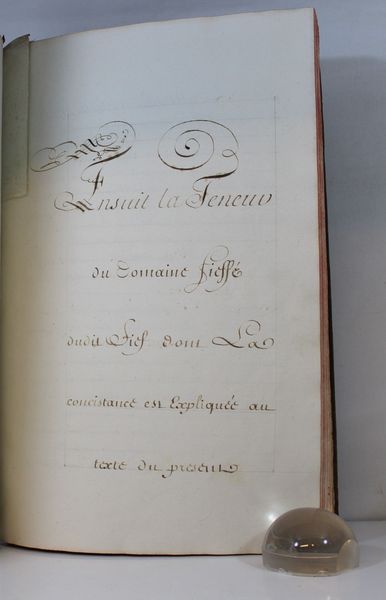 Ensuit la Teneur
du Domaine fieffé
dudit Fief dont La
concistance est Expliquée au
texte du present